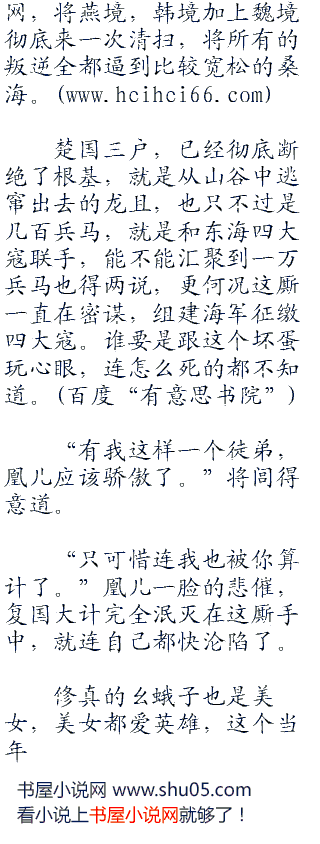 网，将燕境，韩境加上魏境
彻底来一次清扫，将所有的
叛逆全都逼到比较宽松的桑
海。(www.hcihci66.com)
楚国三户，已经彻底断
绝了根基，就是从山谷中逃
窜出去的龙且，也只不过是
几百兵马，就是和东海四大
寇联手，能不能汇聚到一万
兵马也得两说，更何况这厮
一直在密谋，组建海军征缴
四大寇。谁要是跟这个坏蛋
玩心眼，连怎么死的都不知
道。(百度“有意思书院”)
“有我这样一个徒弟，
凰儿应该骄傲了。”将闾得
意道。
“只可惜连我也被你算
计了。”凰儿一脸的悲催，
复国大计完全泯灭在这厮手
中，就连自己都快沦陷了。
修真的幺蛾子也是美
女，美女都爱英雄，这个当
年
书屋小说网 www.shu05.com
看小说上书屋小说网就够了！